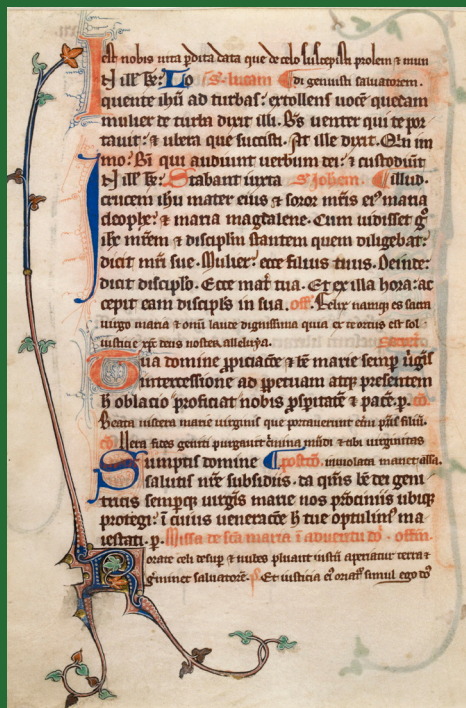 est nobis vita perdita data que de celo suscepisti prolem & mun
N ill' te: Lo S. lucam di genuisti salvatorem.
quente ihu ad turbas: extollens voce quedam
mulier de turba dixit illi. Bs venter qui te por
tavit: & ubera que succisti. At ille dixit. Qin im
mo: Bi qui audiunt verbum dei: & custodiut
N ill' te: Stabant iuxta S. Johem. Illud.
crucem ihu mater eius & soror mris ei maria
cleophe: & maria magdalene. Cum vidisset g
ihc mrem & discipulm stantem quem diligebat:
dicit mri sue. Mulier: ecce filius tuus. Deinde:
dicit discipulo. Ecce mat tua. Et ex illa hora: ac
cepit eam discipls in sua. off. Felix namq es sacra
virgo maria & omi laude dignissima quia ex te ortus est sol
iusticie xpc deus noster alleluya. secreta
Tua domine ppiciacoe & be marie semp vgis
intercessione ad ppetuam atq presentem
h oblacio proficiat nobis pspitate & pace. p. co.
Beata viscera marie virginis que portaverunt etni pris filiu.
co. Vera fides geniti purgavit crimina mudi & tibi virginitas
Sumptis domine postco. inviolata manet. alla.
salutis nre subsidiis. da qs be dei geni
tricis sempq virgis marie nos prociniis ubiq
protegi: i cuius veneracoe h tue optulim ma
iestati. p. Missa de sca maria i adventu do. offm.
Rorate celi desup & nubes pluant iustu aperiatur terra &
g minet salvatore. p. Et iusticia ei oriat simul ego do